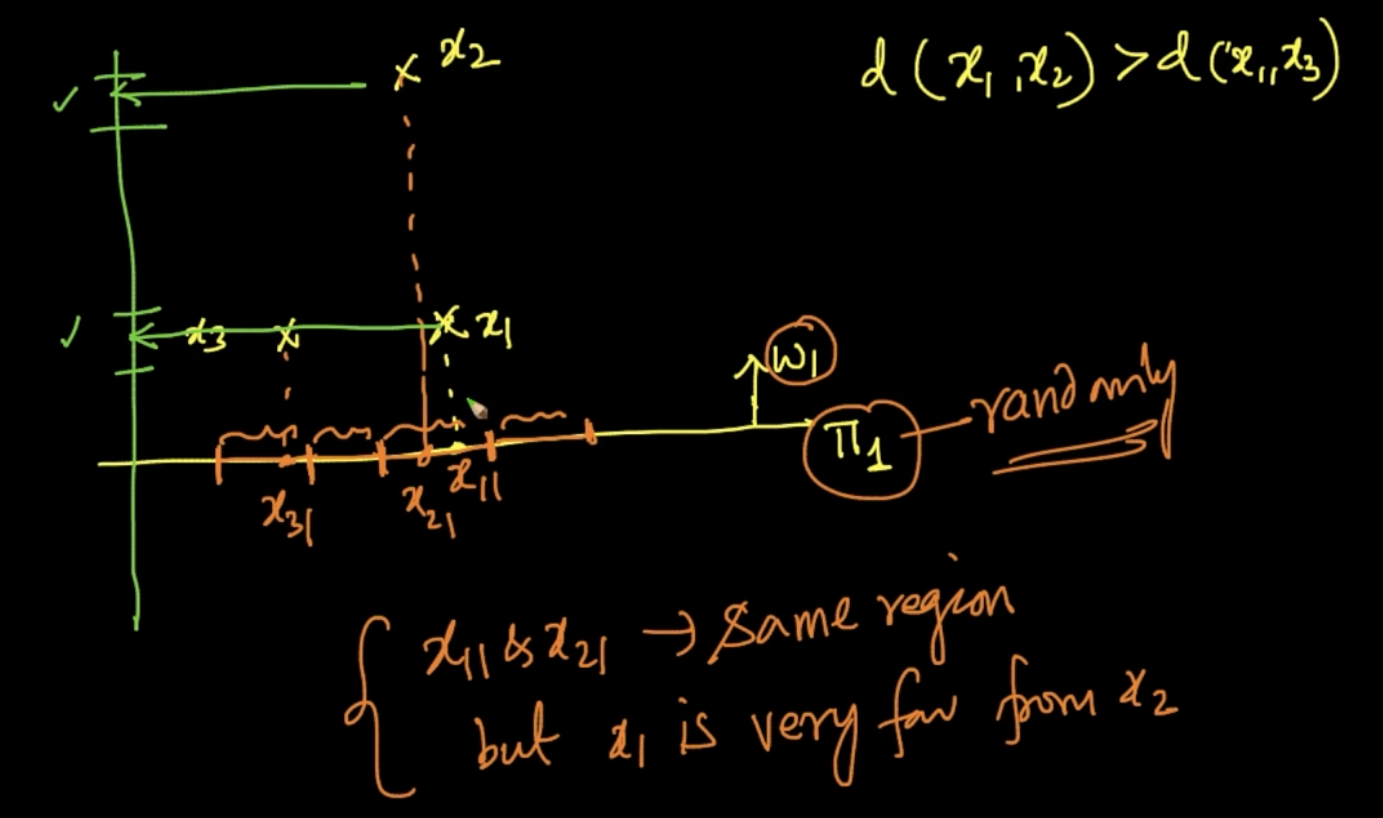 x₂
d(x₁,x₂) > d(x₁,x₃)
x₃ x₁
w₁
π₁ randomly
x₃₁ x₂₁ x₁₁
x₁₁ & x₂₁ → same region
but x₁ is very far from x₂